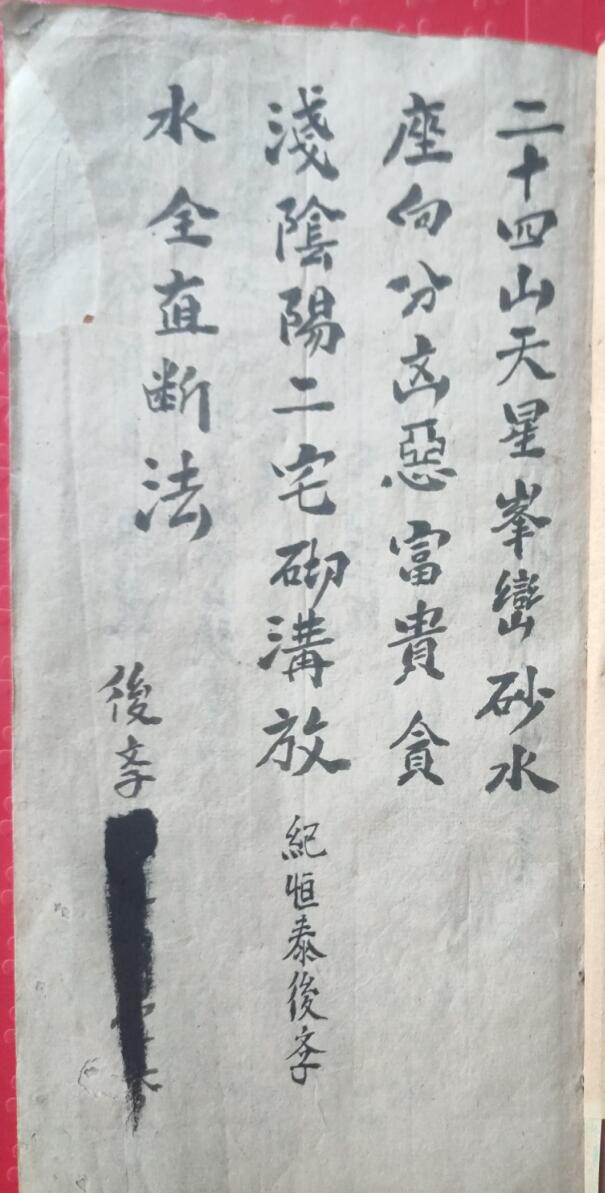 二十四山天星峯巒砂水
座向分凶惡富貴貪
淺陰陽二宅砌溝放
紀恒泰後孝
水全直断法
後孝